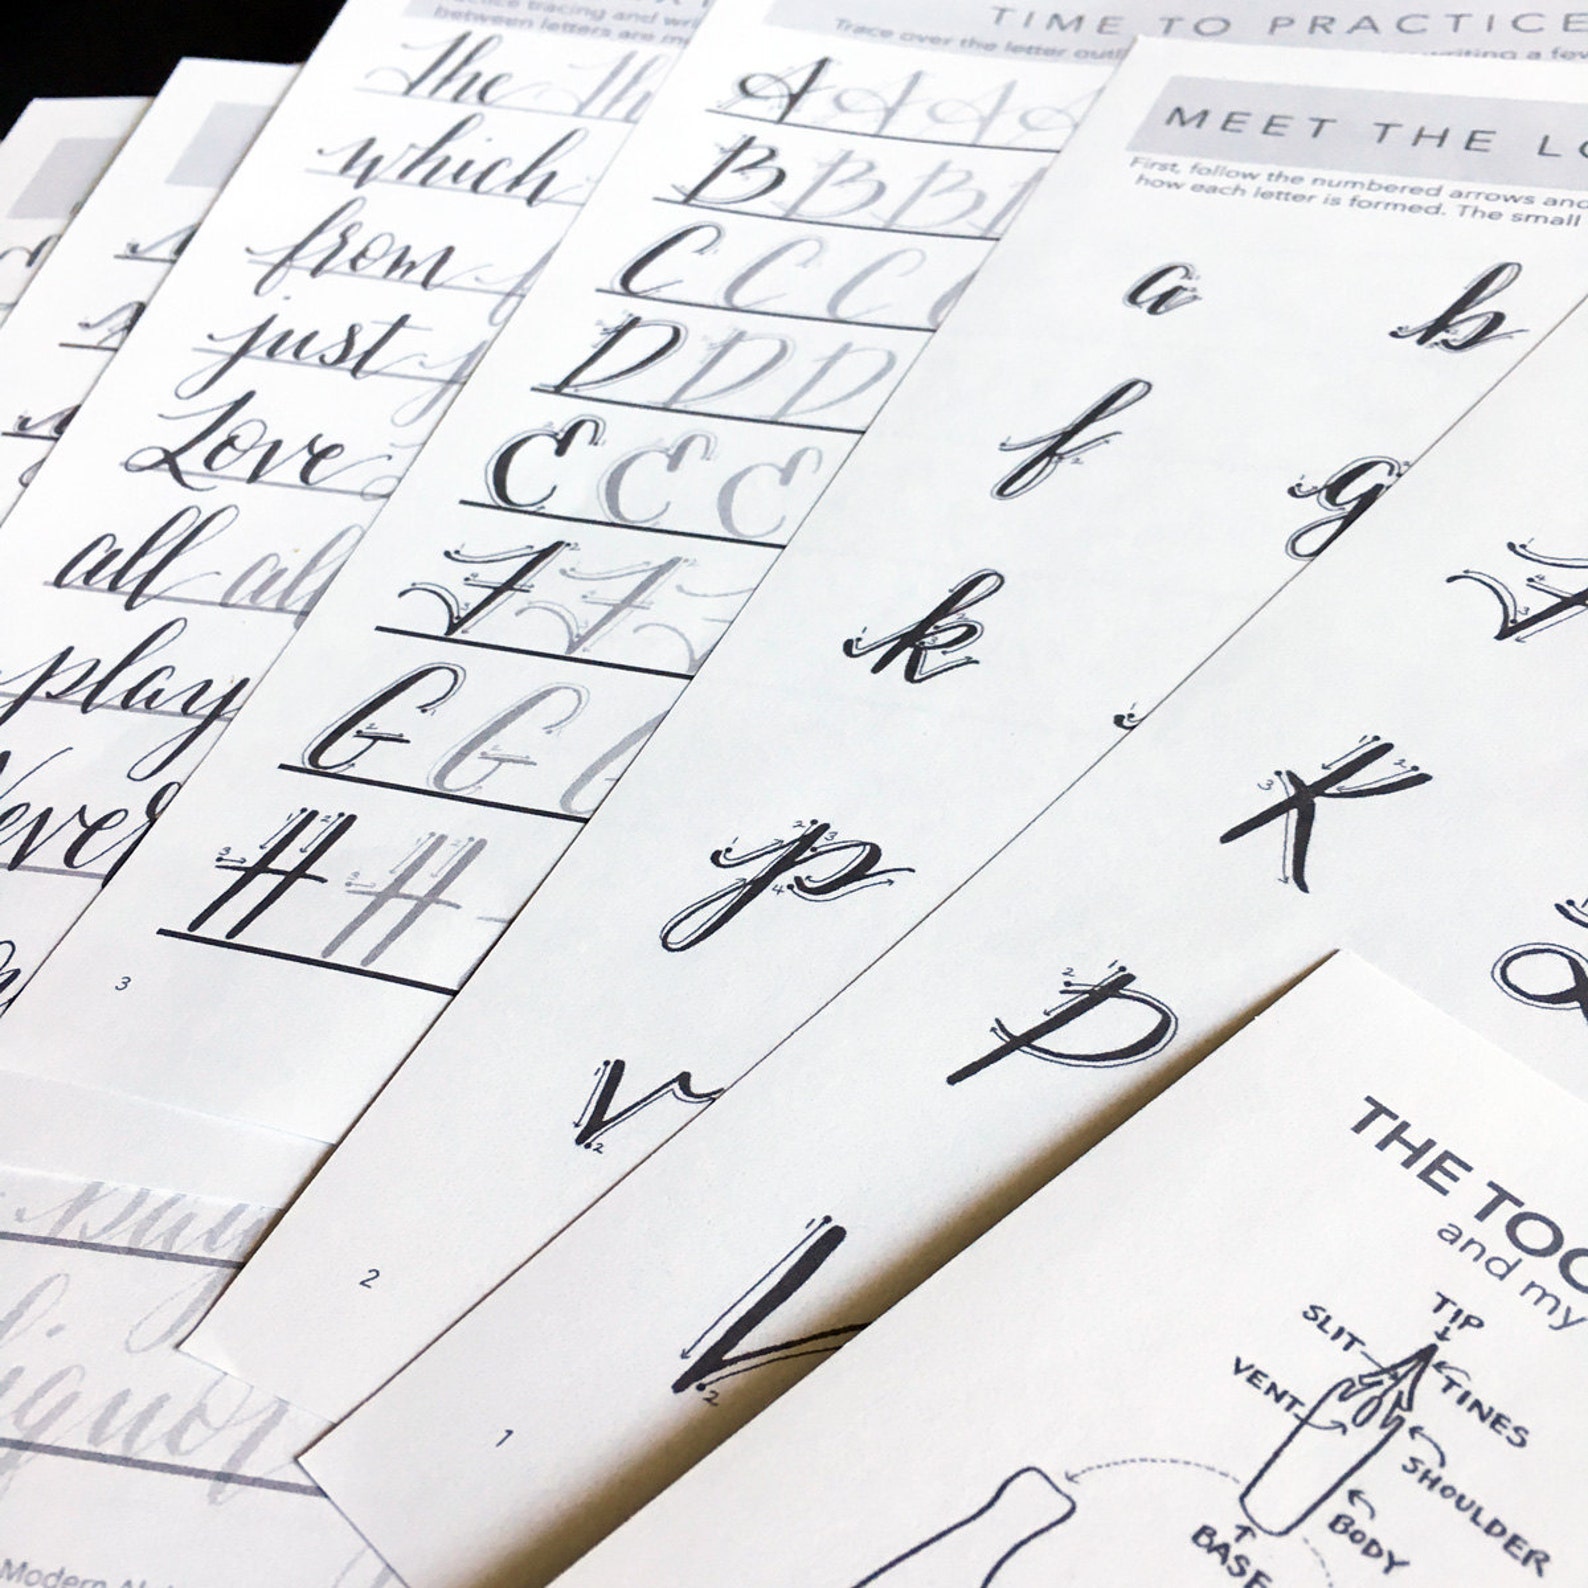 between letters are
The Th
which
from
just
Love
all all
play
Never
TIME TO PRACTICE
Trace over the letter
writing a few
A A A A
B B B
C C C
D D D
E E E
F F
G G
H H
3
MEET THE LO
First, follow the numbered arrows and
how each letter is formed. The small
a b
f g
k
p
v
2
F
K
P
V
1
THE TOO
and my
TIP
SLIT
VENT
TINES
SHOULDER
BODY
BASE
Modern